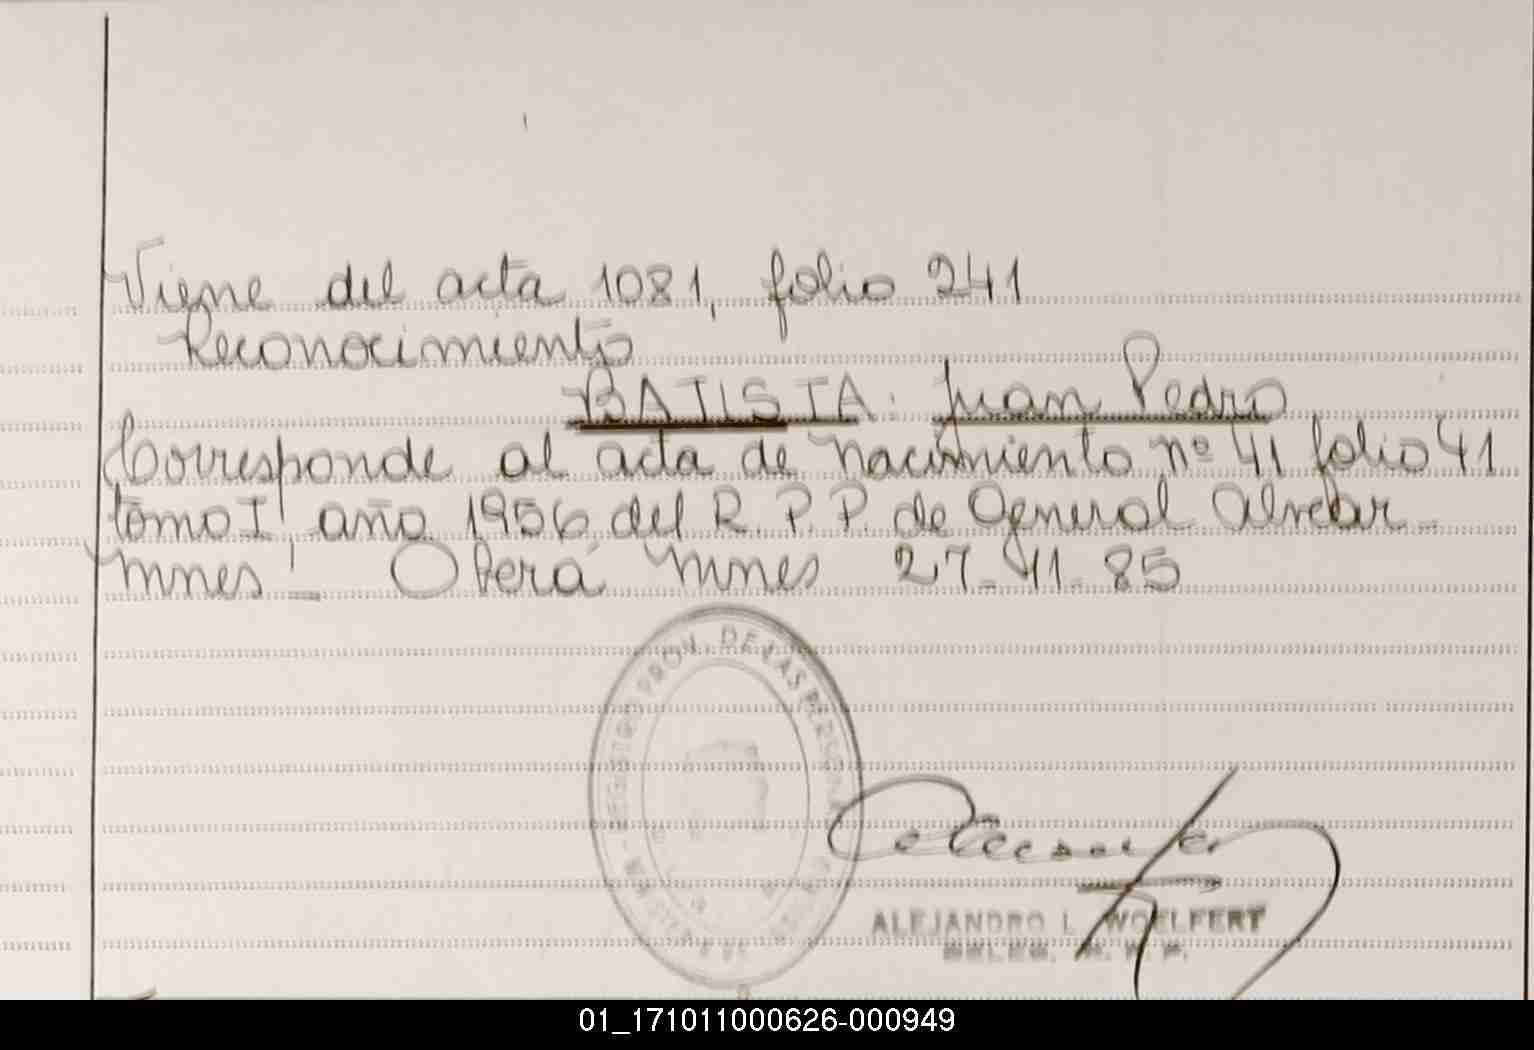 Viene del acta 1081, folio 241
Reconocimiento
BATISTA: Juan Pedro
Corresponde al acta de nacimiento nº 41 folio 41
tomo I, año 1956 del R.P.P. de General Alvear
Mnes! _ Oberá Mnes 27-11-85
REGISTRO PROV. DE LAS PERSONAS
ALEJANDRO L. WOELFERT
DELEG. R. P. P.
01_171011000626-000949